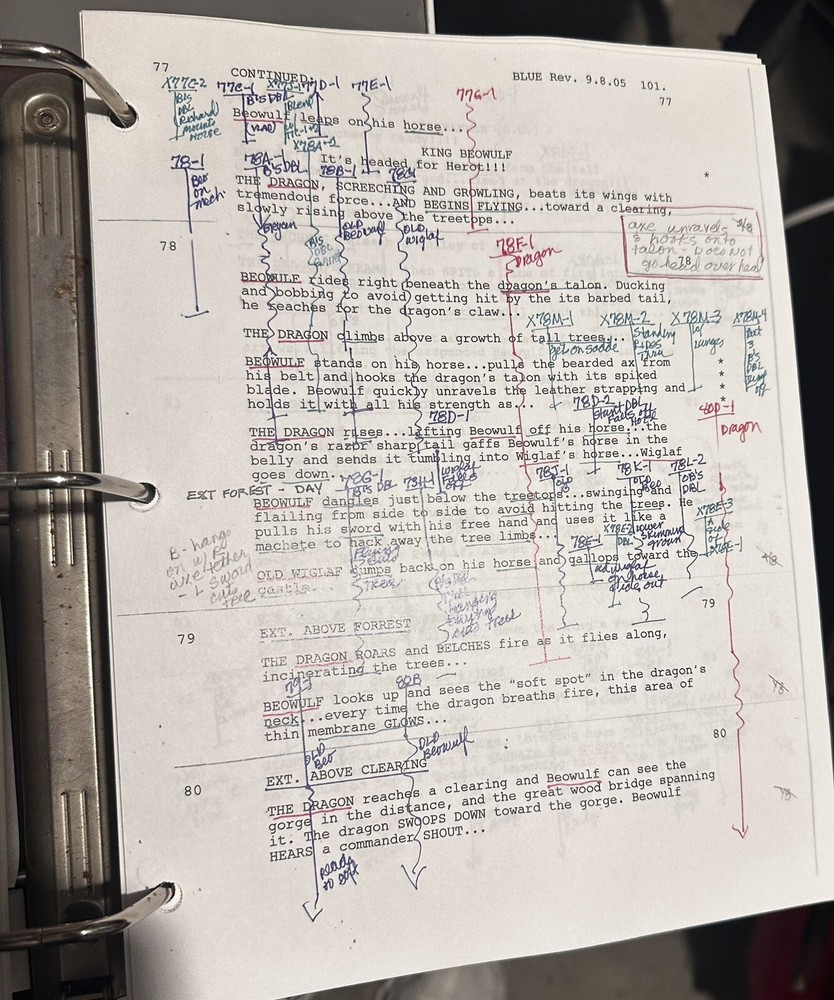 77
CONTINUED:
BLUE Rev. 9.8.05 101.
77
X77C-2
77C-1
77D-1
77E-1
77G-1
B's DBL
Beowulf leaps on his horse...
X78A-1
KING BEOWULF
It's headed for Herot!!!
*
78-1
78A-1
B's DBL
78B-1
Beo on mech
THE DRAGON, SCREECHING AND GROWLING, beats its wings with
tremendous force...AND BEGINS FLYING...toward a clearing,
slowly rising above the treetops...
OLD Beowulf
OLD Wiglaf
78F-1
Dragon
axe unravels
& hooks onto
talon - Does not
go head over head
78
78
BEOWULF rides right beneath the dragon's talon. Ducking
and bobbing to avoid getting hit by the its barbed tail,
he reaches for the dragon's claw...
X78M-1
X78M-2
X78M-3
X78M-4
THE DRAGON climbs above a growth of tall trees...
BEOWULF stands on his horse...pulls the bearded ax from
his belt and hooks the dragon's talon with its spiked
blade. Beowulf quickly unravels the leather strapping and
holds it with all his strength as...
*
*
*
*
78D-1
78D-2
80D-1
Dragon
THE DRAGON rises...lifting Beowulf off his horse...the
dragon's razor sharp tail gaffs Beowulf's horse in the
belly and sends it tumbling into Wiglaf's horse...Wiglaf
goes down...
EXT FOREST - DAY
78G-1
B's DBL
78H-1
78J-1
78K-1
78L-2
BEOWULF dangles just below the treetops...swinging and
flailing from side to side to avoid hitting the trees. He
pulls his sword with his free hand and uses it like a
machete to hack away the tree limbs...
78E-1
X78E-2
X78E-3
OLD WIGLAF jumps back on his horse and gallops toward the
castle...
79
79
EXT. ABOVE FORREST
THE DRAGON ROARS and BELCHES fire as it flies along,
incinerating the trees...
82B
BEOWULF looks up and sees the "soft spot" in the dragon's
neck...every time the dragon breaths fire, this area of
thin membrane GLOWS...
OLD Beo
OLD Beowulf
80
80
EXT. ABOVE CLEARING
THE DRAGON reaches a clearing and Beowulf can see the
gorge in the distance, and the great wood bridge spanning
it. The dragon SWOOPS DOWN toward the gorge. Beowulf
HEARS a commander SHOUT...